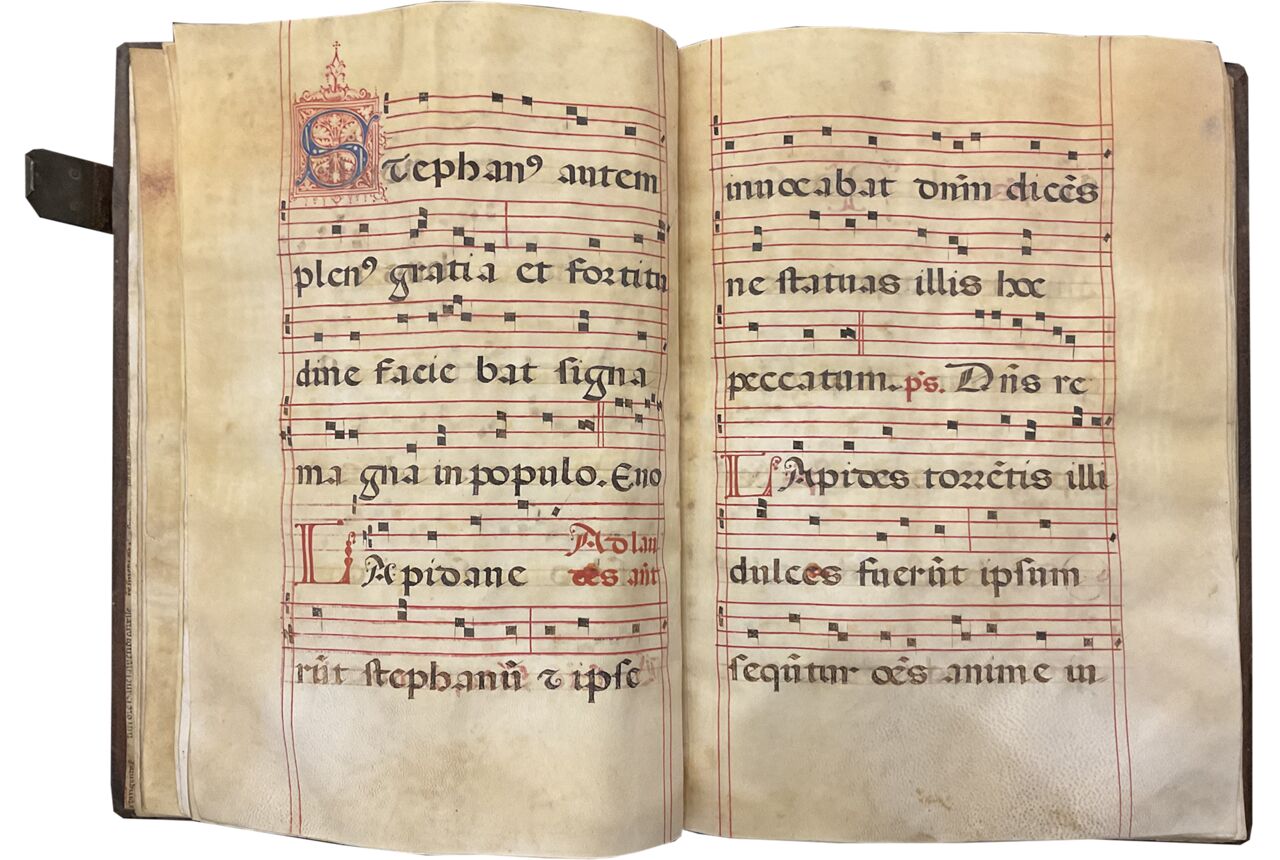 Stephanꝰ autem
plenꝰ gratia et fortitu
dine facie bat signa
ma gna in populo. Euo
Ad lau
LApidaue des añt
rūt stephanū ⁊ ipse
inuocabat dñm dicēs
ne statuas illis hoc
peccatum. p̄s. Dñs re
LApides torrētis illi
dulces fuerūt ipsum
sequūtur oēs anime iu